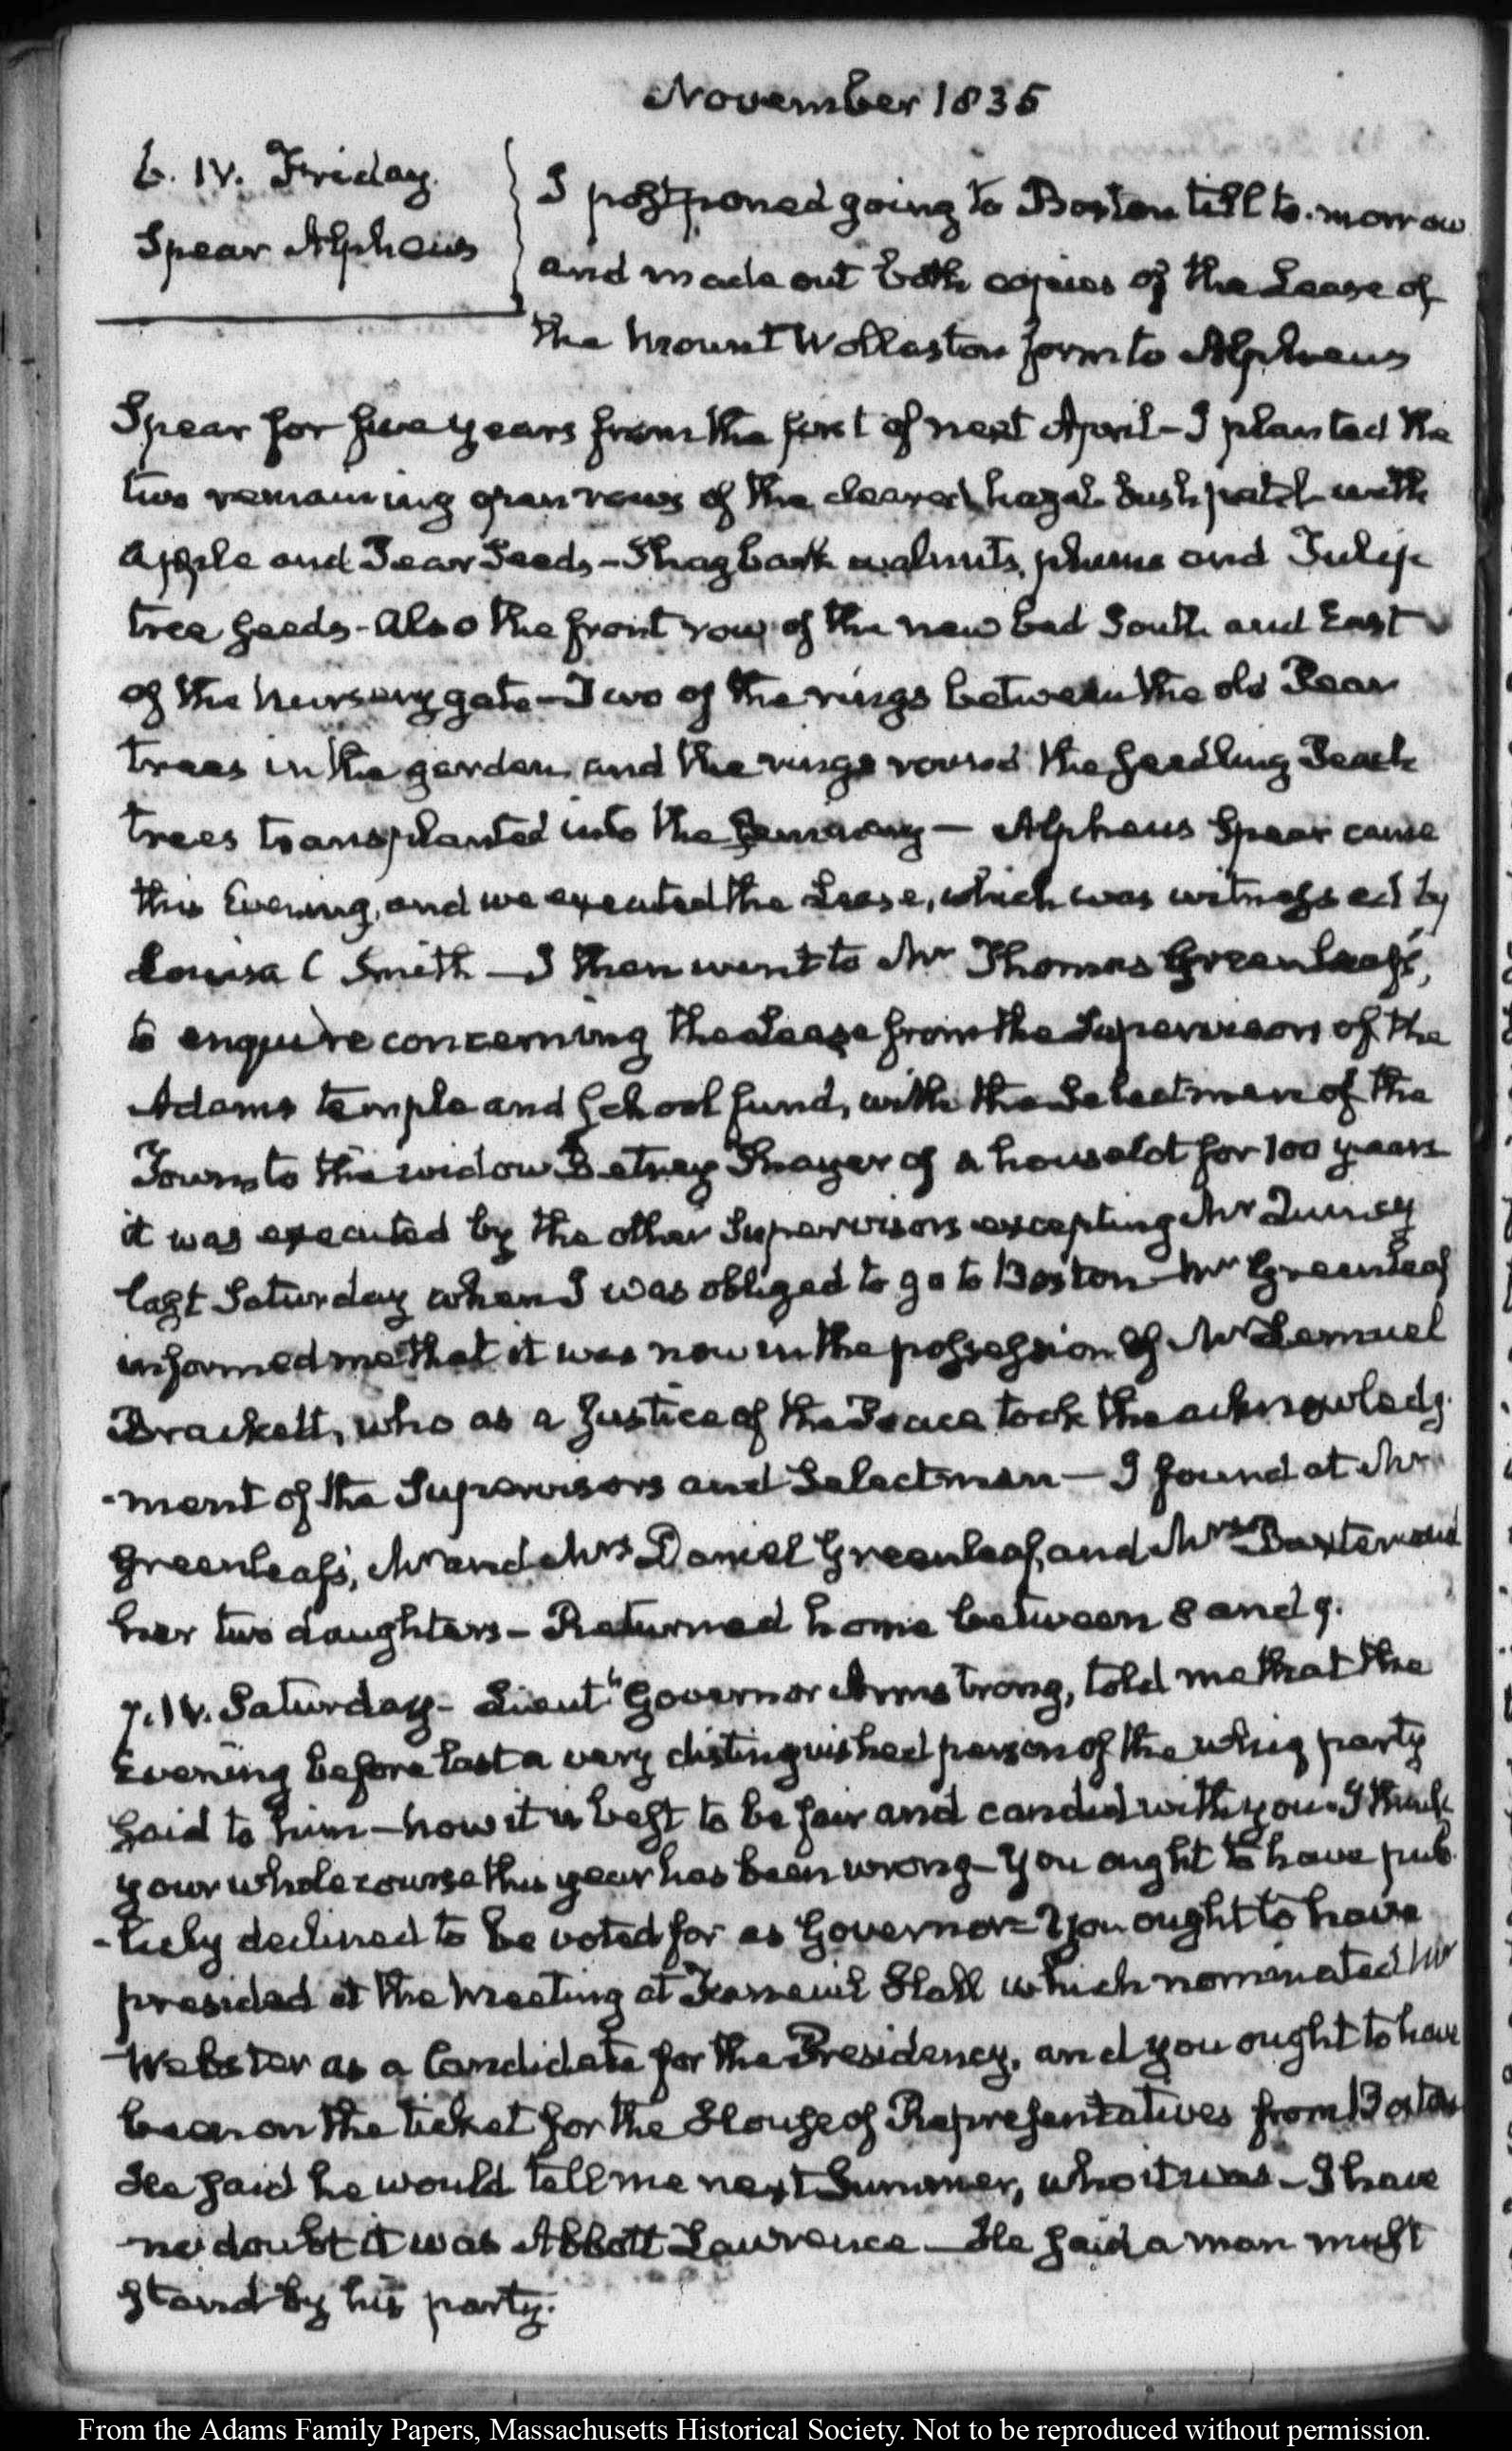 November 1835
6. IV. Friday.
Spear Alpheus
I postponed going to Boston till to-morrow
and made out both copies of the Lease of
the Mount Wollaston farm to Alpheus
Spear for five years from the first of next April – I planted the
two remaining open rows of the cleared hazel bush patch with
apple and Pear Seeds – Shagbark walnuts, plums and Tulip
tree seeds – also the front row of the new bed South and East
of the Nursery gate – Two of the rings between the old Pear
trees in the garden, and the rings round the seedling Peach
trees transplanted into the Seminary – Alpheus Spear came
this Evening, and we executed the Lease, which was witnessed by
Louisa C Smith – I then went to Mr Thomas Greenleaf's,
to enquire concerning the Lease from the Supervisors of the
Adams temple and School fund, with the Selectmen of the
Town, to the widow Betsey Thayer of a house lot for 100 years
it was executed by the other Supervisors excepting Mr Quincy
last Saturday when I was obliged to go to Boston – Mr Greenleaf
informed me that it was now in the possession of Mr Lemuel
Brackett, who as a Justice of the Peace took the acknowledg-
-ment of the Supervisors and Selectmen – I found at Mr
Greenleaf's, Mr and Mrs Daniel Greenleaf, and Mrs Baxter and
her two daughters – Returned home between 8 and 9.
7. IV. Saturday – Lieutt Governor Armstrong, told me that the
Evening before last a very distinguished person of the whig party
said to him – now it is best to be fair and candid with you. I think
your whole course this year has been wrong – You ought to have pub-
-licly declined to be voted for as Governor – You ought to have
presided at the Meeting at Faneuil Hall which nominated Mr
Webster as a Candidate for the Presidency, and you ought to have
been on the ticket for the House of Representatives from Boston
He said he would tell me next Summer, who it was – I have
no doubt it was Abbott Lawrence – He said a man must
stand by his party.
From the Adams Family Papers, Massachusetts Historical Society. Not to be reproduced without permission.